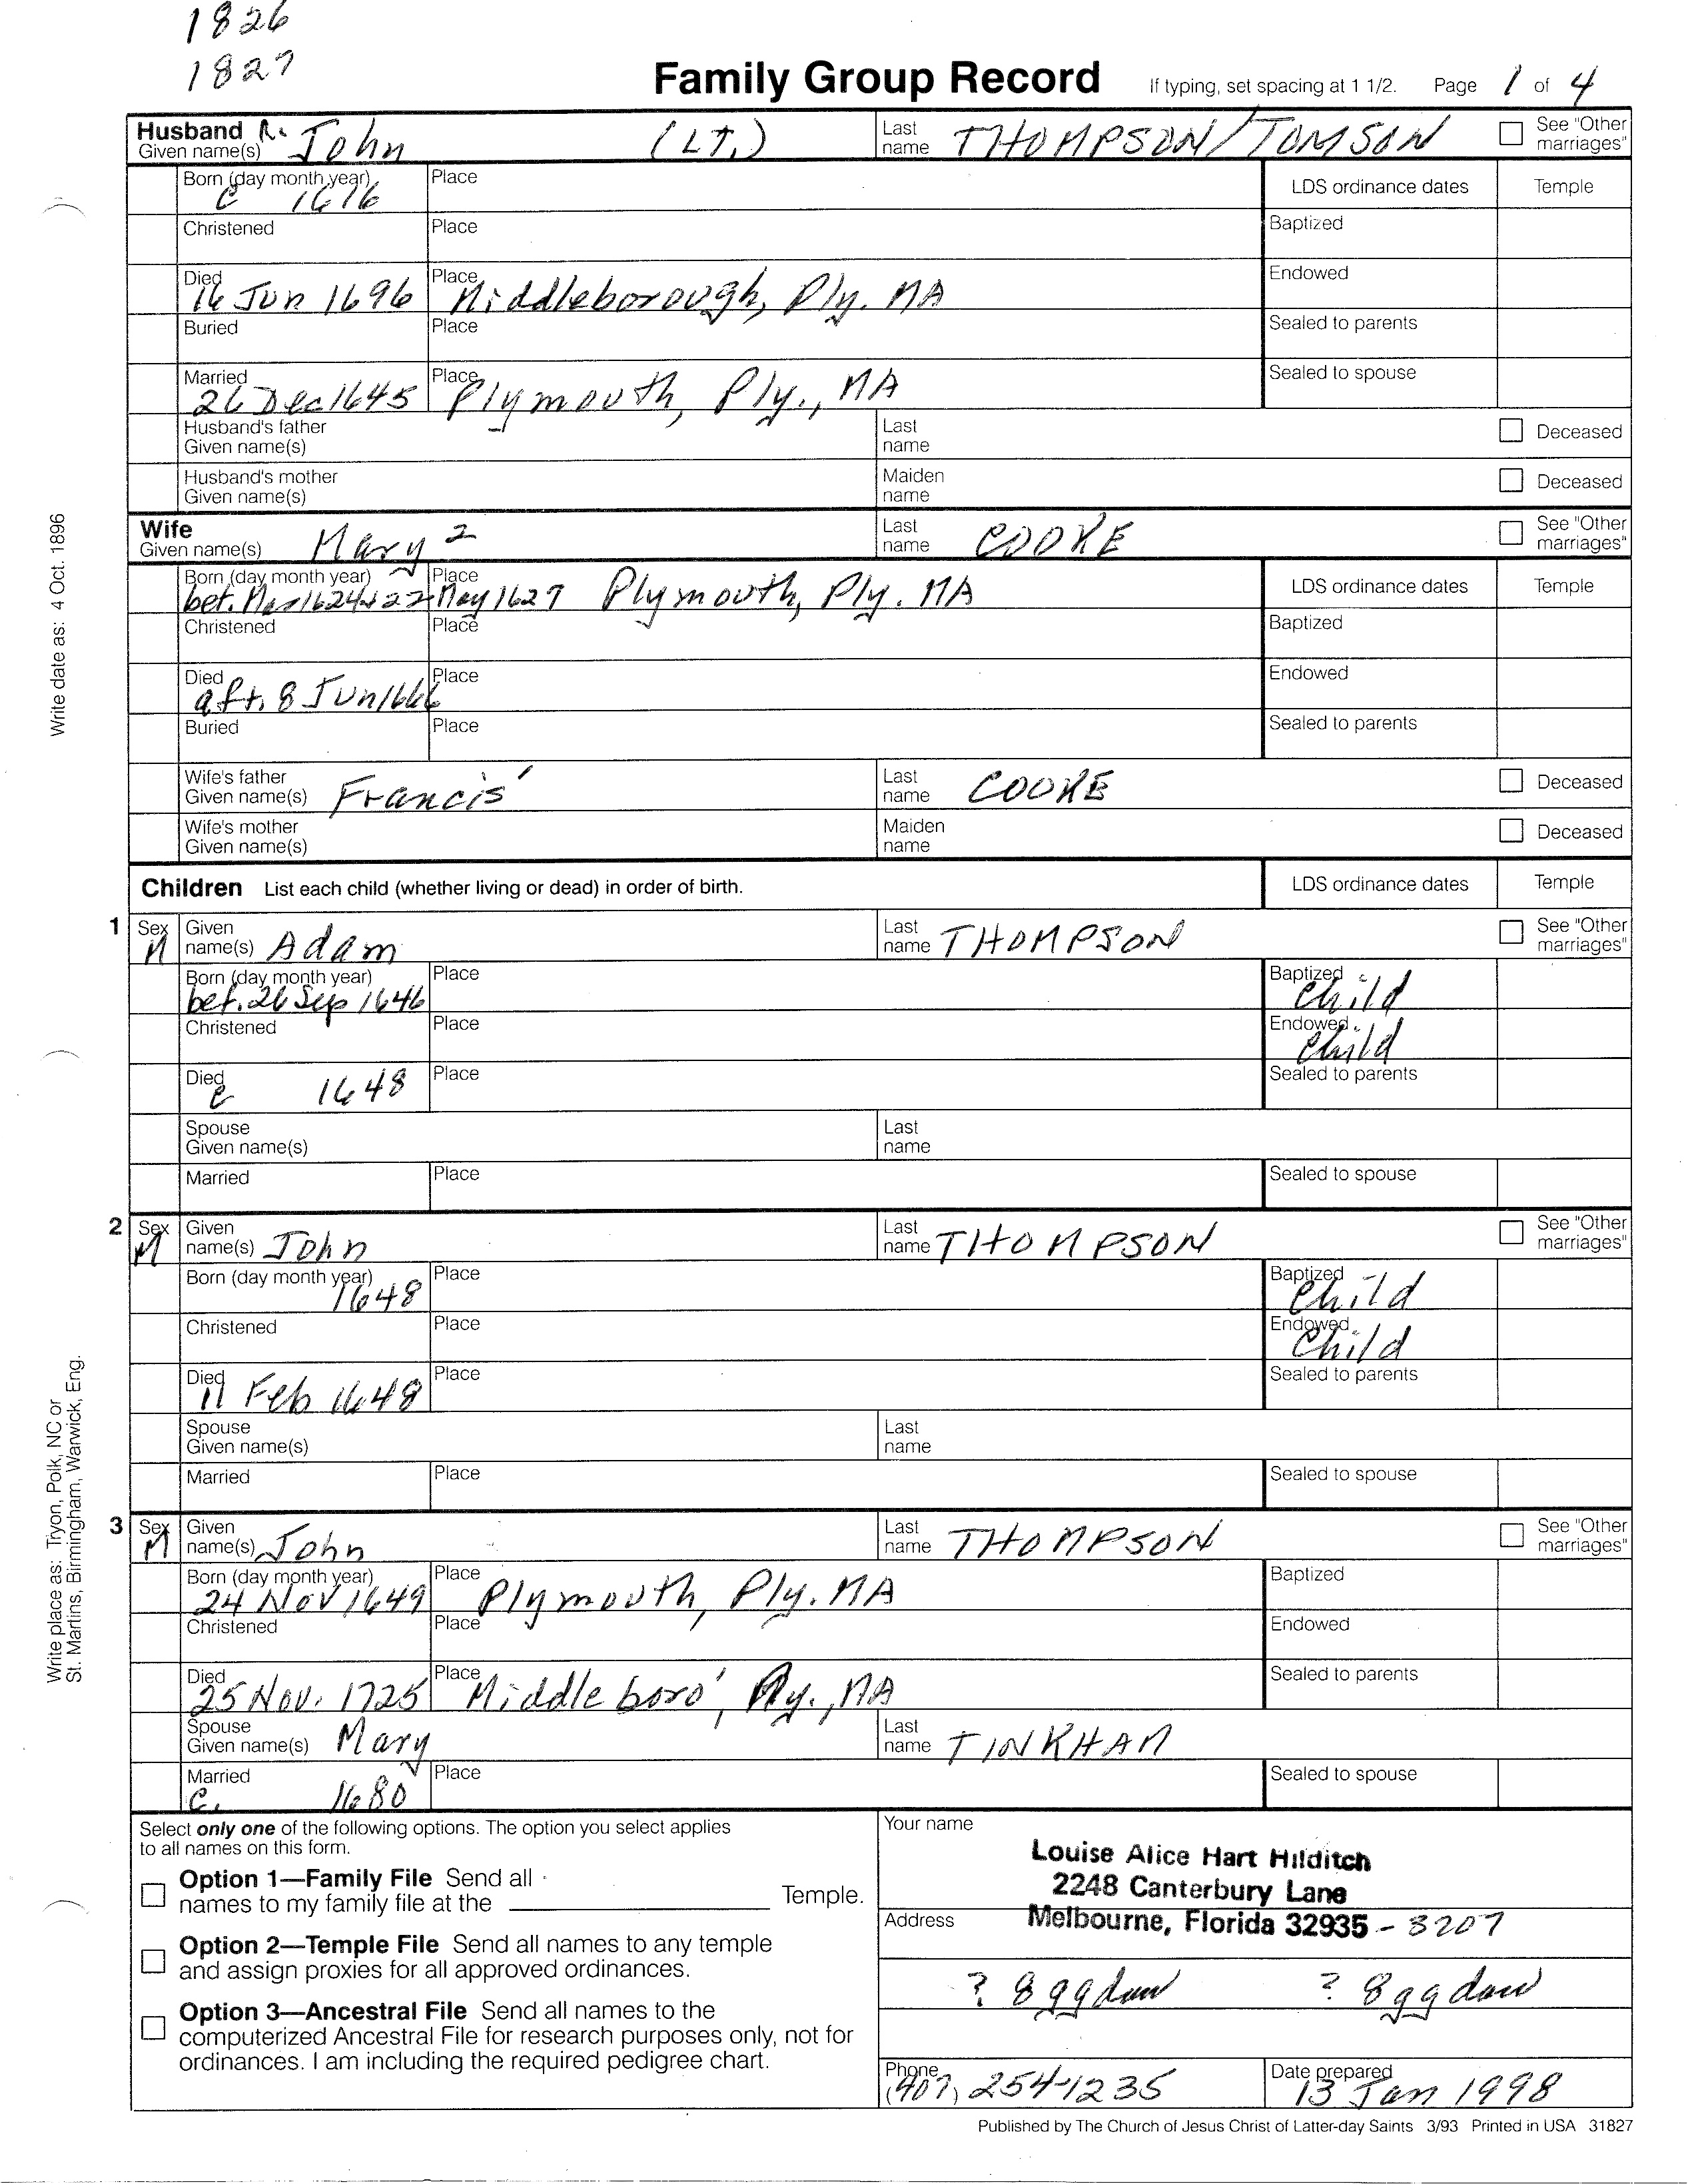 1826
1827
Family Group Record If typing, set spacing at 1 1/2. Page 1 of 4
Husband R. John (LT.) Last THOMPSON/TOMSON See "Other
Given name(s) name marriages"
Born (day month year) Place LDS ordinance dates Temple
c 1616
Christened Place Baptized
Died Place Endowed
16 Jun 1696 Middleborough, Ply. MA
Buried Place Sealed to parents
Married Place Sealed to spouse
26 Dec 1645 Plymouth, Ply., MA
Husband's father Last Deceased
Given name(s) name
Husband's mother Maiden Deceased
Given name(s) name
Wife Mary 2 Last COOKE See "Other
Given name(s) name marriages"
Born (day month year) Place LDS ordinance dates Temple
bet. Mar 1624 & 22 May 1627 Plymouth, Ply. MA
Christened Place Baptized
Died Place Endowed
aft. 8 Jun 1666
Buried Place Sealed to parents
Wife's father Francis' Last COOKE Deceased
Given name(s) name
Wife's mother Maiden Deceased
Given name(s) name
Children List each child (whether living or dead) in order of birth. LDS ordinance dates Temple
1 Sex Given Last See "Other
M name(s) Adam name THOMPSON marriages"
Born (day month year) Place Baptized
bef. 26 Sep 1646 Child
Christened Place Endowed
Child
Died Place Sealed to parents
c 1648
Spouse Last
Given name(s) name
Married Place Sealed to spouse
2 Sex Given Last See "Other
M name(s) John name THOMPSON marriages"
Born (day month year) Place Baptized
1648 Child
Christened Place Endowed
Child
Died Place Sealed to parents
11 Feb 1648
Spouse Last
Given name(s) name
Married Place Sealed to spouse
3 Sex Given Last See "Other
M name(s) John name THOMPSON marriages"
Born (day month year) Place Baptized
24 Nov 1649 Plymouth, Ply. MA
Christened Place Endowed
Died Place Sealed to parents
25 Nov. 1725 Middleboro', Ply., MA
Spouse Last
Given name(s) Mary name TINKHAM
Married Place Sealed to spouse
c. 1680
Select only one of the following options. The option you select applies
to all names on this form.
Option 1—Family File Send all
names to my family file at the Temple.
Option 2—Temple File Send all names to any temple
and assign proxies for all approved ordinances.
Option 3—Ancestral File Send all names to the
computerized Ancestral File for research purposes only, not for
ordinances. I am including the required pedigree chart.
Your name
Louise Alice Hart Hilditch
2248 Canterbury Lane
Address Melbourne, Florida 32935 - 3207
? 8 gg daw ? 8 gg daw
Phone Date prepared
(407) 254-1235 13 Jan 1998
Published by The Church of Jesus Christ of Latter-day Saints 3/93 Printed in USA 31827
Write date as: 4 Oct. 1896
Write place as: Tryon, Polk, NC or
St. Martins, Birmingham, Warwick, Eng.